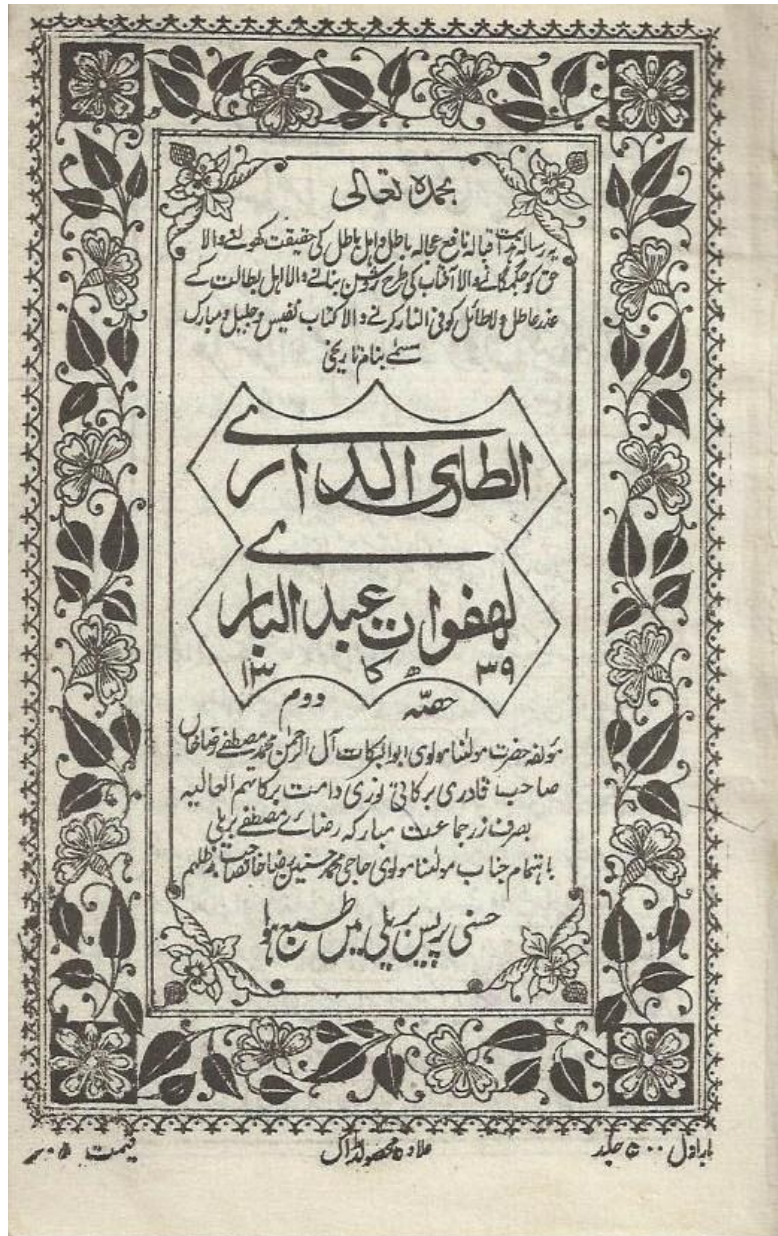 بحمدہ تعالی
یہ رسالہ ہدایت قبالہ نافع عجالہ باطل و اہل باطل کی حقیقت کھولنے والا
حق کو جگمگانے والا آفتاب کی طرح روشن بنانے والا اہل بطالت کے
عذر عاطل و لاطائل کو فی النار کرنے والا کتاب نفیس و جلیل و مبارک
مسمے بنام تاریخی
الطاری الداری
لہفوات عبد الباری
۱۳ھ۳۹
حصّہ دوم
مؤلفہ حضرت مولٰنا مولوی ابوالبرکات آل الرحمٰن محمد مصطفے رضاخاں
صاحب قادری برکاتی نوری دامت برکاتہم العالیہ
بصرف زر جماعت مبارکہ رضائے مصطفے بریلی
باہتمام جناب مولٰنا مولوی حاجی محمد حسنین رضا خانصاحب مدظلہم
حسنی پریس بریلی میں طبع ہوا
بار اول ۵۰۰ جلد علاوہ محصولڈاک قیمت